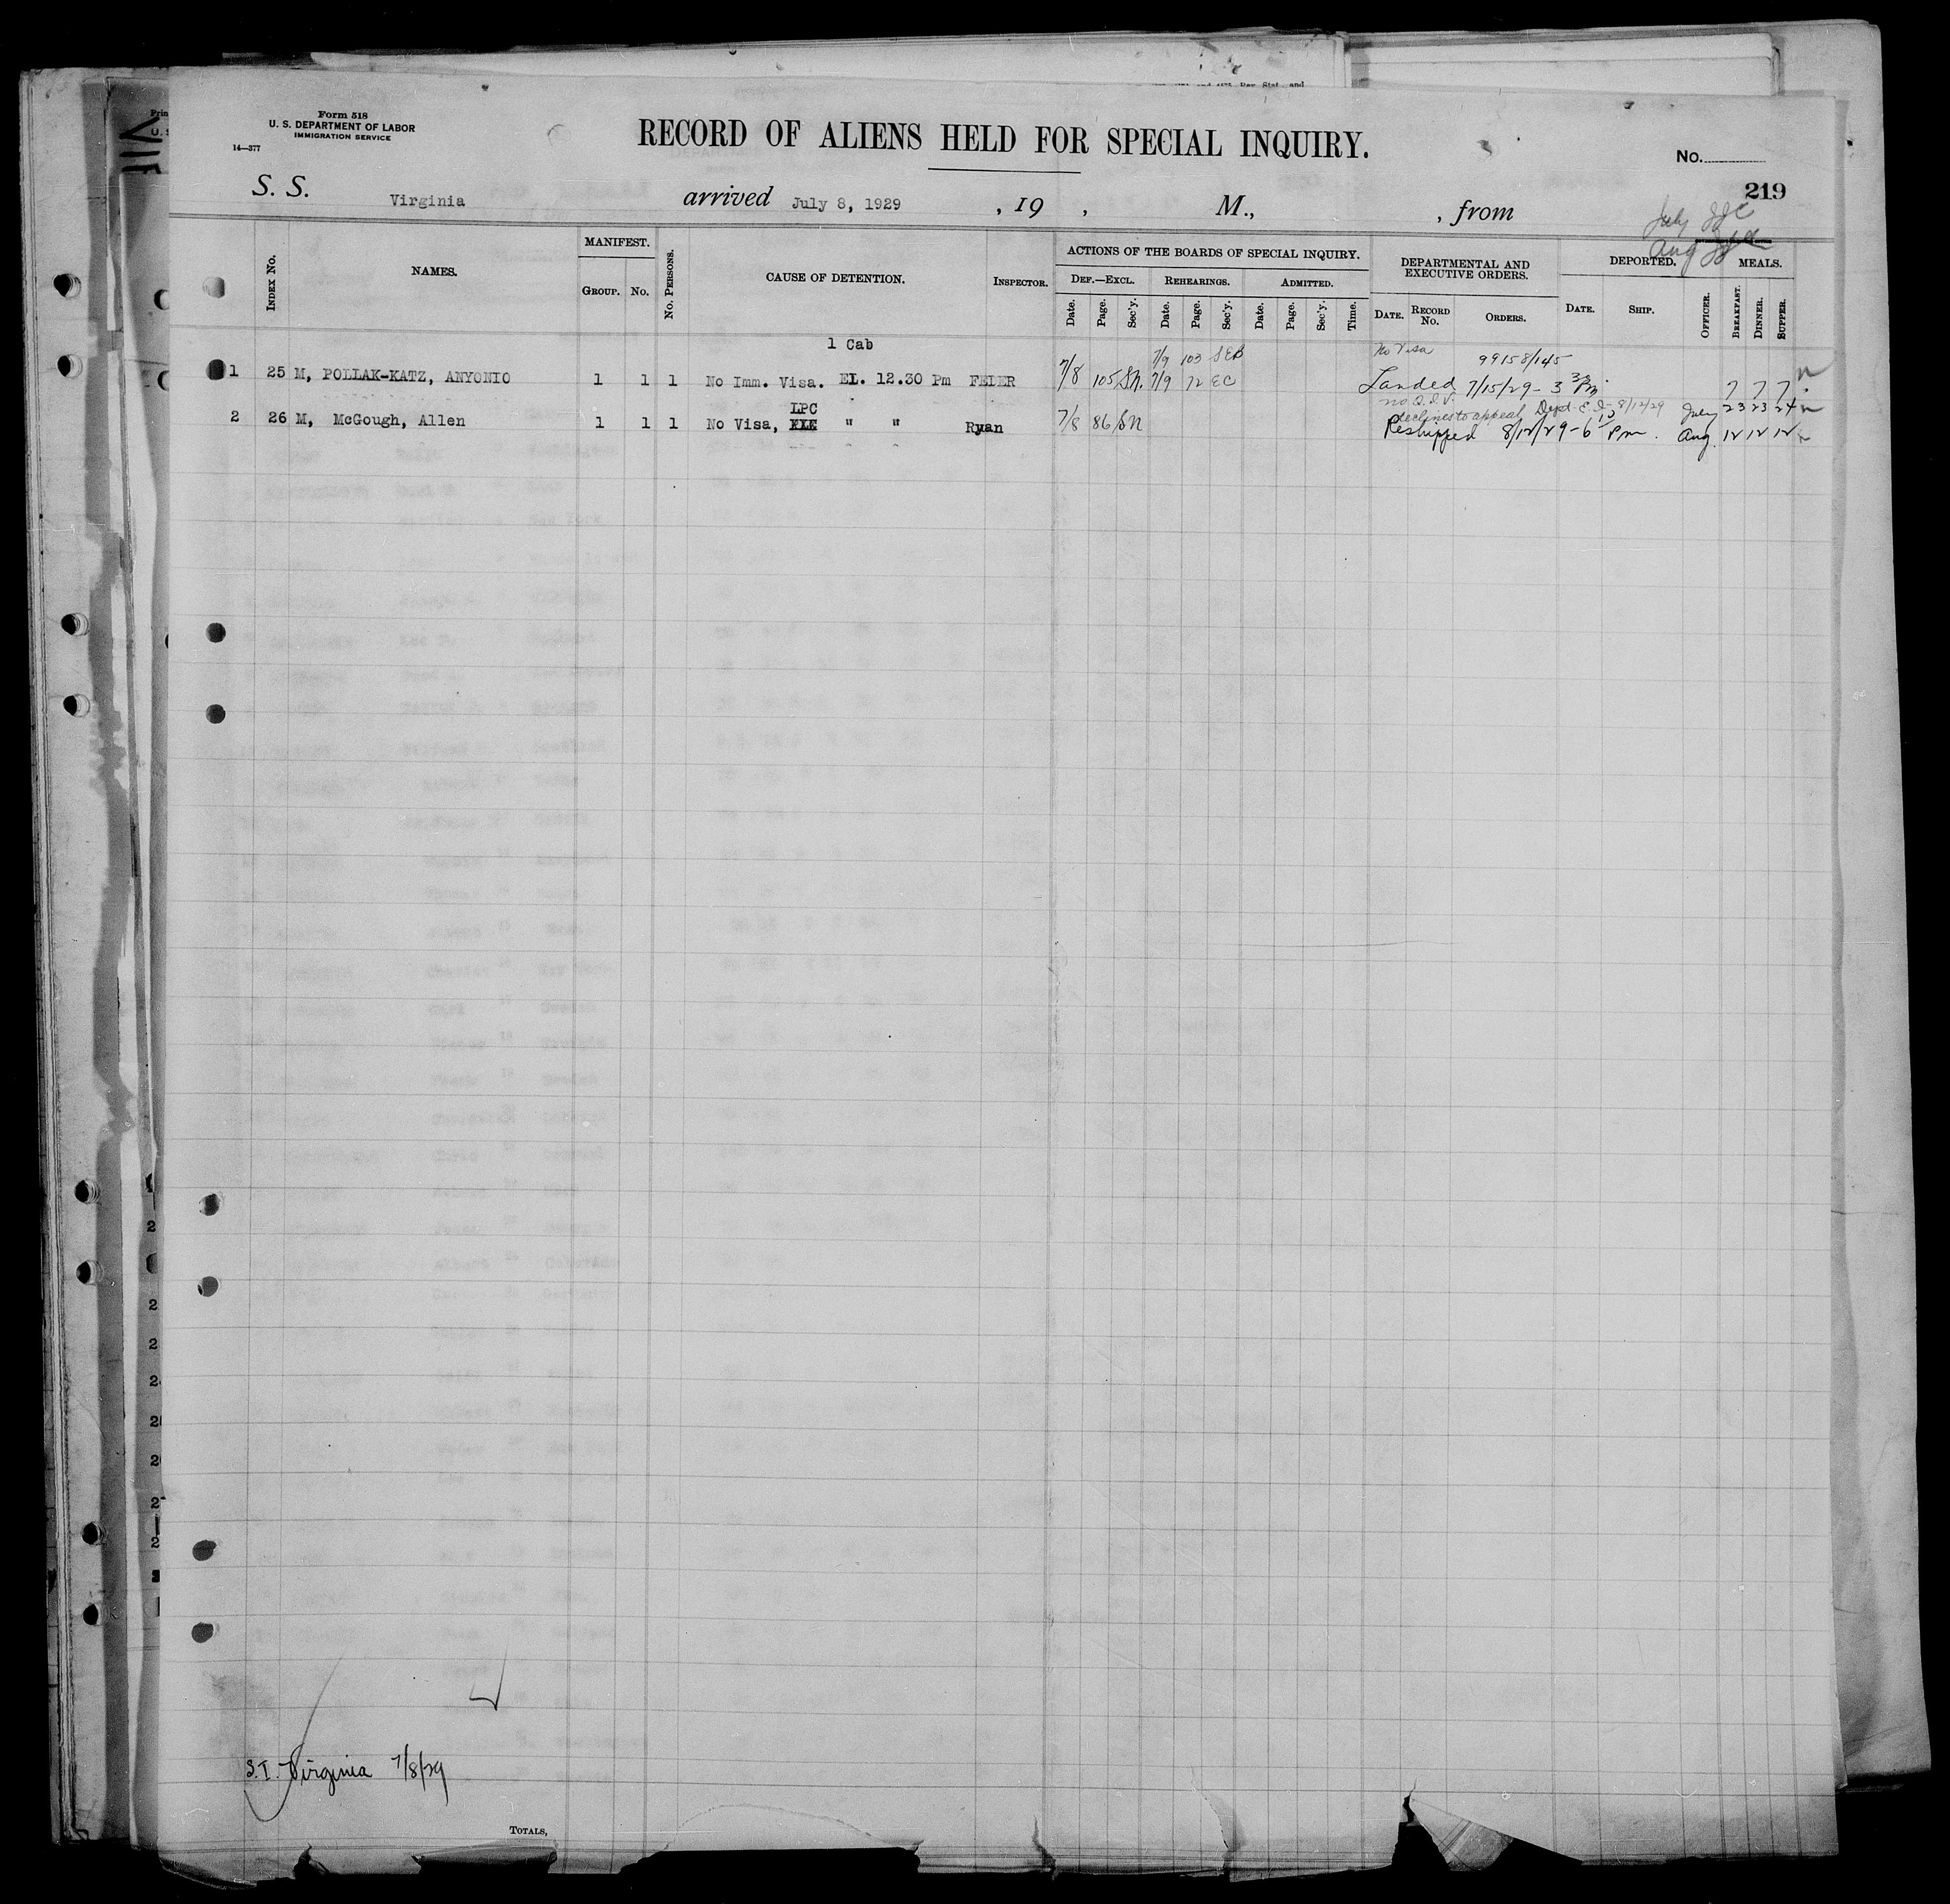 Form 518
U. S. DEPARTMENT OF LABOR
IMMIGRATION SERVICE
14—377
RECORD OF ALIENS HELD FOR SPECIAL INQUIRY.
No.
219
S. S. Virginia arrived July 8, 1929 , 19 , M., , from
July
Aug
INDEX NO. NAMES. MANIFEST. GROUP. NO. NO. PERSONS. CAUSE OF DETENTION. INSPECTOR. ACTIONS OF THE BOARDS OF SPECIAL INQUIRY. DEF.—EXCL. Date. Page. Sec'y. REHEARINGS. Date. Page. Sec'y. ADMITTED. Date. Page. Sec'y. Time. DEPARTMENTAL AND EXECUTIVE ORDERS. DATE. RECORD NO. ORDERS. DEPORTED. DATE. SHIP. OFFICER. MEALS. BREAKFAST. DINNER. SUPPER.
1 Cab 7/9 103 SEB No Visa 99158/145
1 25 M, POLLAK-KATZ, ANYONIO 1 1 1 No Imm. Visa. EL. 12.30 Pm FEIER 7/8 105 SN. 7/9 72 EC Landed 7/15/29 - 3 30 Pm 7 7 7
LPC no Q.I.V. declines to appeal Dept. E.I. 8/12/29 July 23 23 24
2 26 M, McGough, Allen 1 1 1 No Visa, " " Ryan 7/8 86 SN Reshipped 8/12/29 - 6 15 Pm. Aug. 12 12 12
S.I. Virginia 7/8/29
TOTALS,